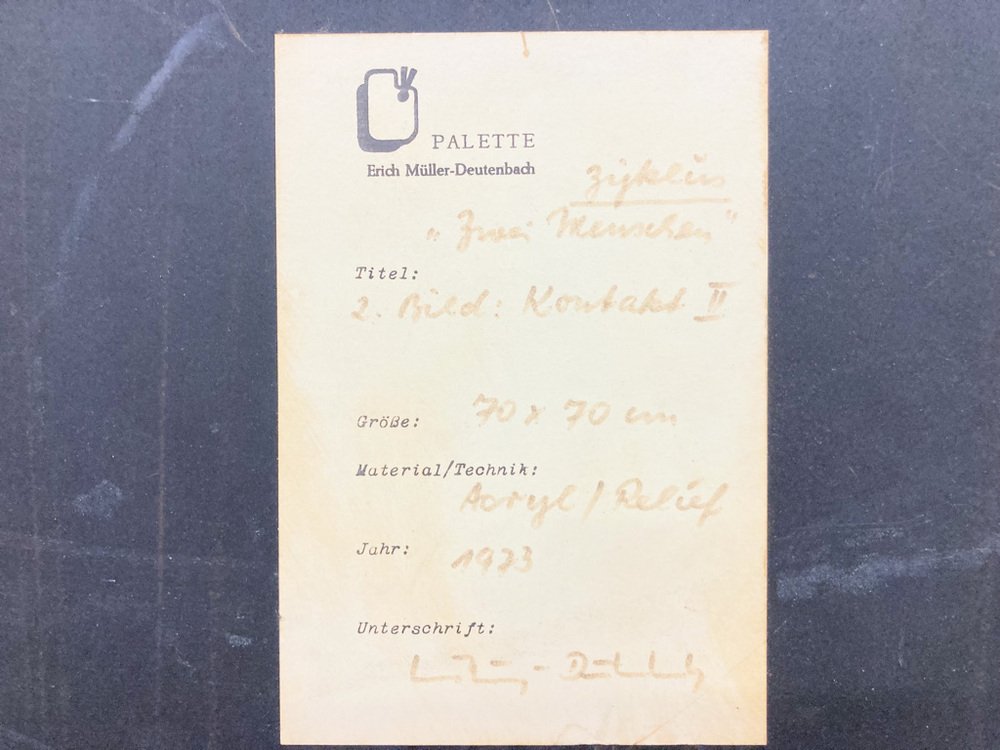 PALETTE
Erich Müller-Deutenbach
Zyklus
"Zwei Menschen"
Titel:
2. Bild: Kontakt II
Größe: 70 x 70 cm
Material/Technik:
Acryl / Relief
Jahr: 1973
Unterschrift: